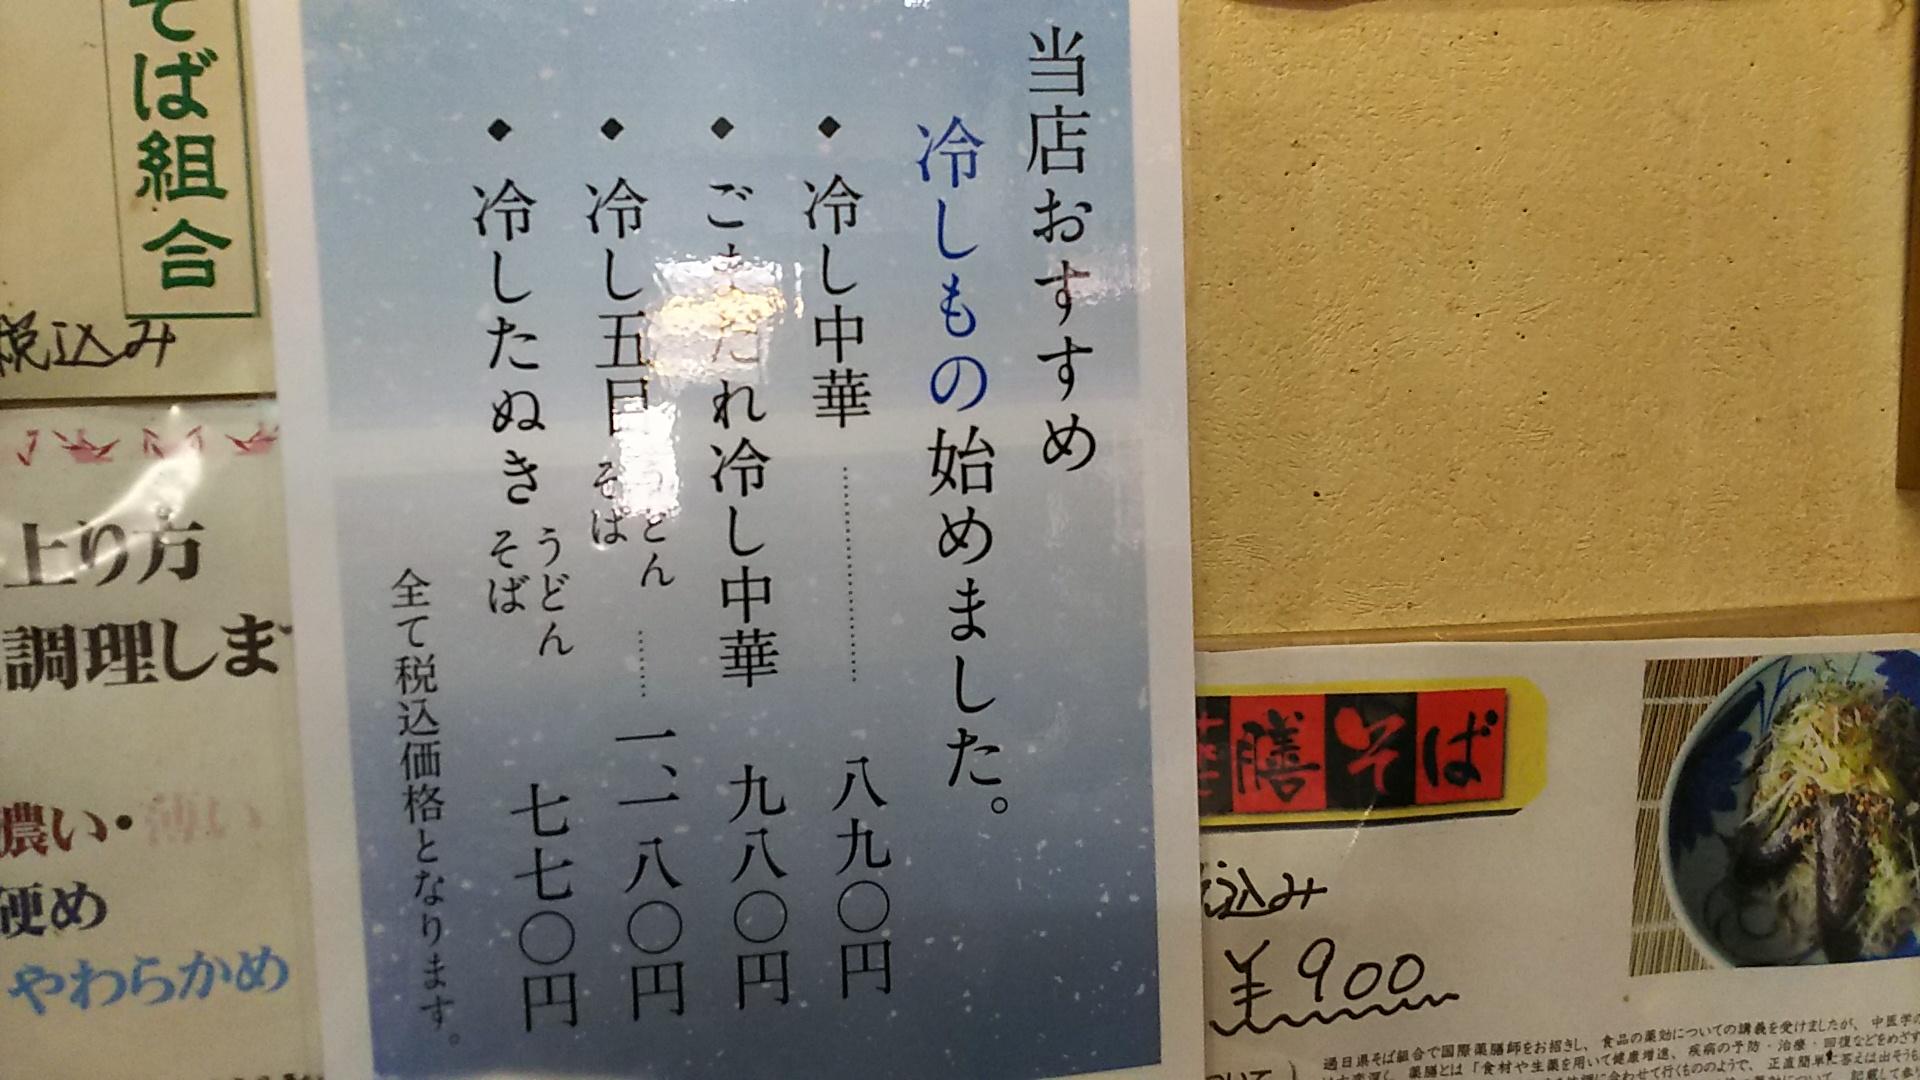 当店おすすめ
冷しもの始めました。
◆ 冷し中華 ………… 八九〇円
◆ ごまだれ冷し中華 九八〇円
◆ 冷し五目 うどん そば …… 一、一八〇円
◆ 冷したぬき うどん そば 七七〇円
全て税込価格となります。
そば組合
税込み
上り方
調理しま
濃い・薄い
硬め
やわらかめ
膳そば
込み
¥900
過日県そば組合で国際薬膳師をお招きし、食品の薬効についての講義を受けましたが、中医学の
薬膳とは「食材や生薬を用いて健康増進、疾病の予防・治療・回復などをめざす